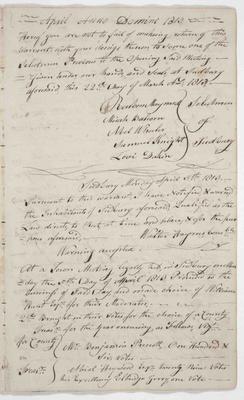 April Anno Domini 1813
Hereof you are not to fail of making return of this
warrant with your doings thereon to some one of the
Selectmen Previous to the Opening Said Meeting
Given under our hands and Seals at Sudbury
aforesaid this 22nd Day of March AD 1813
Reuben Maynard
Micah
Abel Wheeler
Samuel Knight
Levi Dakin
Selectmen
of
Sudbury
Sudbury Monday April 5th 1813
Pursuant to this warrant I have Notified & warned
the Inhabitants of Sudbury aforesaid Qualified as the
Law directs to meet at time and place & for the pur
poses aforesaid
Walter Haynes
Warning accepted
At a Town Meeting legally held in Sudbury on Mon
day the 5th Day of April 1813 Pursuant to the
Warrant of Said Day and made choice of William
Hunt Esqr for their Moderator
2nd Brought in their Votes for the choice of a County
for the year ensuing as follows Viz
for County
Mr Benjamin One Hundred &
Six Votes
Heywood Esqr twenty Nine Votes
his Excellency Elbridge Gerry one Vote